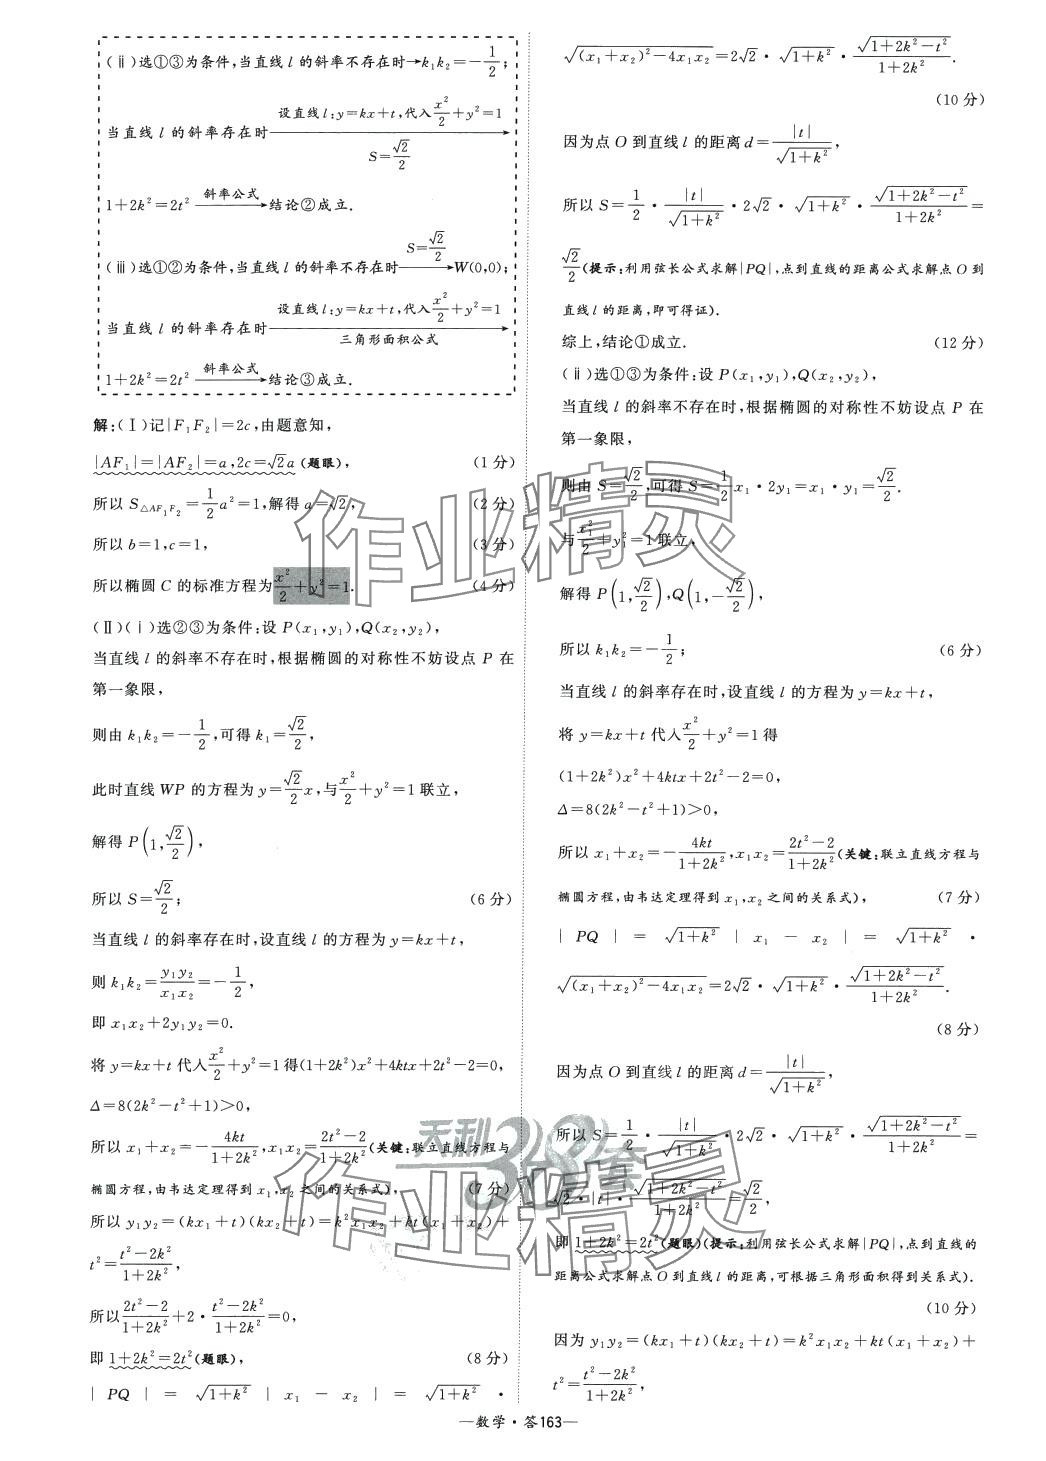 (ⅱ)选①③为条件,当直线 l 的斜率不存在时→k₁k₂=-1/2;
设直线 l:y=kx+t,代入x²/2+y²=1
当直线 l 的斜率存在时
S=√2/2
1+2k²=2t² 斜率公式→结论②成立.
(ⅲ)选①②为条件,当直线 l 的斜率不存在时 S=√2/2→W(0,0);
设直线 l:y=kx+t,代入x²/2+y²=1
当直线 l 的斜率存在时
三角形面积公式
1+2k²=2t² 斜率公式→结论③成立.
解:(Ⅰ)记|F₁F₂|=2c,由题意知,
|AF₁|=|AF₂|=a,2c=√2a(题眼), (1 分)
所以 S△AF₁F₂=1/2a²=1,解得 a=√2, (2 分)
所以 b=1,c=1, (3 分)
所以椭圆 C 的标准方程为x²/2+y²=1. (4 分)
(Ⅱ)(ⅰ)选②③为条件:设 P(x₁,y₁),Q(x₂,y₂),
当直线 l 的斜率不存在时,根据椭圆的对称性不妨设点 P 在
第一象限,
则由 k₁k₂=-1/2,可得 k₁=√2/2,
此时直线 WP 的方程为 y=√2/2x,与x²/2+y²=1 联立,
解得 P(1,√2/2),
所以 S=√2/2; (6 分)
当直线 l 的斜率存在时,设直线 l 的方程为 y=kx+t,
则 k₁k₂=y₁y₂/x₁x₂=-1/2,
即 x₁x₂+2y₁y₂=0.
将 y=kx+t 代入x²/2+y²=1得(1+2k²)x²+4ktx+2t²-2=0,
Δ=8(2k²-t²+1)>0,
所以 x₁+x₂=-4kt/(1+2k²),x₁x₂=(2t²-2)/(1+2k²)(关键:联立直线方程与
椭圆方程,由韦达定理得到 x₁,x₂ 之间的关系式), (7 分)
所以 y₁y₂=(kx₁+t)(kx₂+t)=k²x₁x₂+kt(x₁+x₂)+
t²=(t²-2k²)/(1+2k²),
所以(2t²-2)/(1+2k²)+2·(t²-2k²)/(1+2k²)=0,
即 1+2k²=2t²(题眼), (8 分)
|PQ|=√(1+k²)|x₁-x₂|=√(1+k²)·
√((x₁+x₂)²-4x₁x₂)=2√2·√(1+k²)·√(1+2k²-t²)/(1+2k²).
(10 分)
因为点 O 到直线 l 的距离 d=|t|/√(1+k²),
所以 S=1/2·|t|/√(1+k²)·2√2·√(1+k²)·√(1+2k²-t²)/(1+2k²)=
√2/2(提示:利用弦长公式求解|PQ|,点到直线的距离公式求解点 O 到
直线 l 的距离,即可得证).
综上,结论①成立. (12 分)
(ⅱ)选①③为条件:设 P(x₁,y₁),Q(x₂,y₂),
当直线 l 的斜率不存在时,根据椭圆的对称性不妨设点 P 在
第一象限,
则由 S=√2/2,可得 S=1/2x₁·2y₁=x₁·y₁=√2/2.
与x₁²/2+y₁²=1 联立,
解得 P(1,√2/2),Q(1,-√2/2),
所以 k₁k₂=-1/2; (6 分)
当直线 l 的斜率存在时,设直线 l 的方程为 y=kx+t,
将 y=kx+t 代入x²/2+y²=1 得
(1+2k²)x²+4ktx+2t²-2=0,
Δ=8(2k²-t²+1)>0,
所以 x₁+x₂=-4kt/(1+2k²),x₁x₂=(2t²-2)/(1+2k²)(关键:联立直线方程与
椭圆方程,由韦达定理得到 x₁,x₂ 之间的关系式), (7 分)
|PQ|=√(1+k²)|x₁-x₂|=√(1+k²)·
√((x₁+x₂)²-4x₁x₂)=2√2·√(1+k²)·√(1+2k²-t²)/(1+2k²).
(8 分)
因为点 O 到直线 l 的距离 d=|t|/√(1+k²),
所以 S=1/2·|t|/√(1+k²)·2√2·√(1+k²)·√(1+2k²-t²)/(1+2k²)=
√2·|t|·√(1+2k²-t²)/(1+2k²)=√2/2,
即 1+2k²=2t²(题眼)(提示:利用弦长公式求解|PQ|,点到直线的
距离公式求解点 O 到直线 l 的距离,可根据三角形面积得到关系式).
(10 分)
因为 y₁y₂=(kx₁+t)(kx₂+t)=k²x₁x₂+kt(x₁+x₂)+
t²=(t²-2k²)/(1+2k²),
—数学·答163—
作业精灵
天利38套
作业精灵